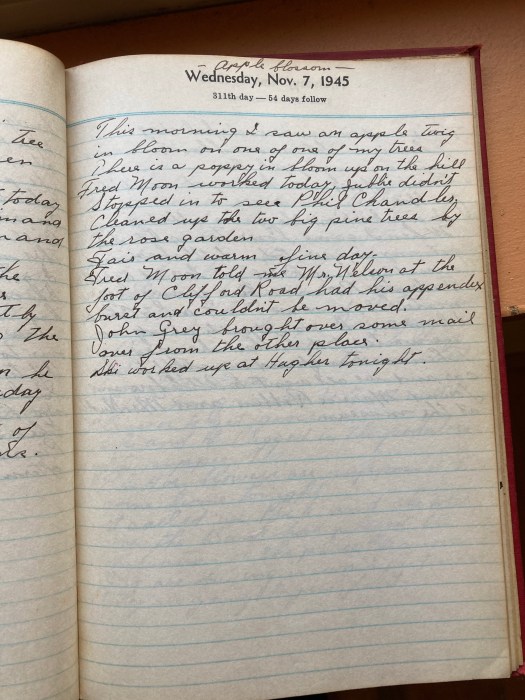 — apple blossom —
Wednesday, Nov. 7, 1945
311th day — 54 days follow
This morning I saw an apple twig
in bloom on one of one of my trees
There is a poppy in bloom up on the hill
Fred Moon worked today, didn't
Stopped in to see Phil Chandler,
Cleaned up the two big pine trees by
the rose garden
Fair and warm fine day.
Fred Moon told me Mr. Nelson at the
foot of Clifford Road had his appendix
burst and couldn't be moved.
John Grey brought over some mail
over from the other place.
worked up at tonight.
tree
en
today
and
the
t by
the
he
day
of